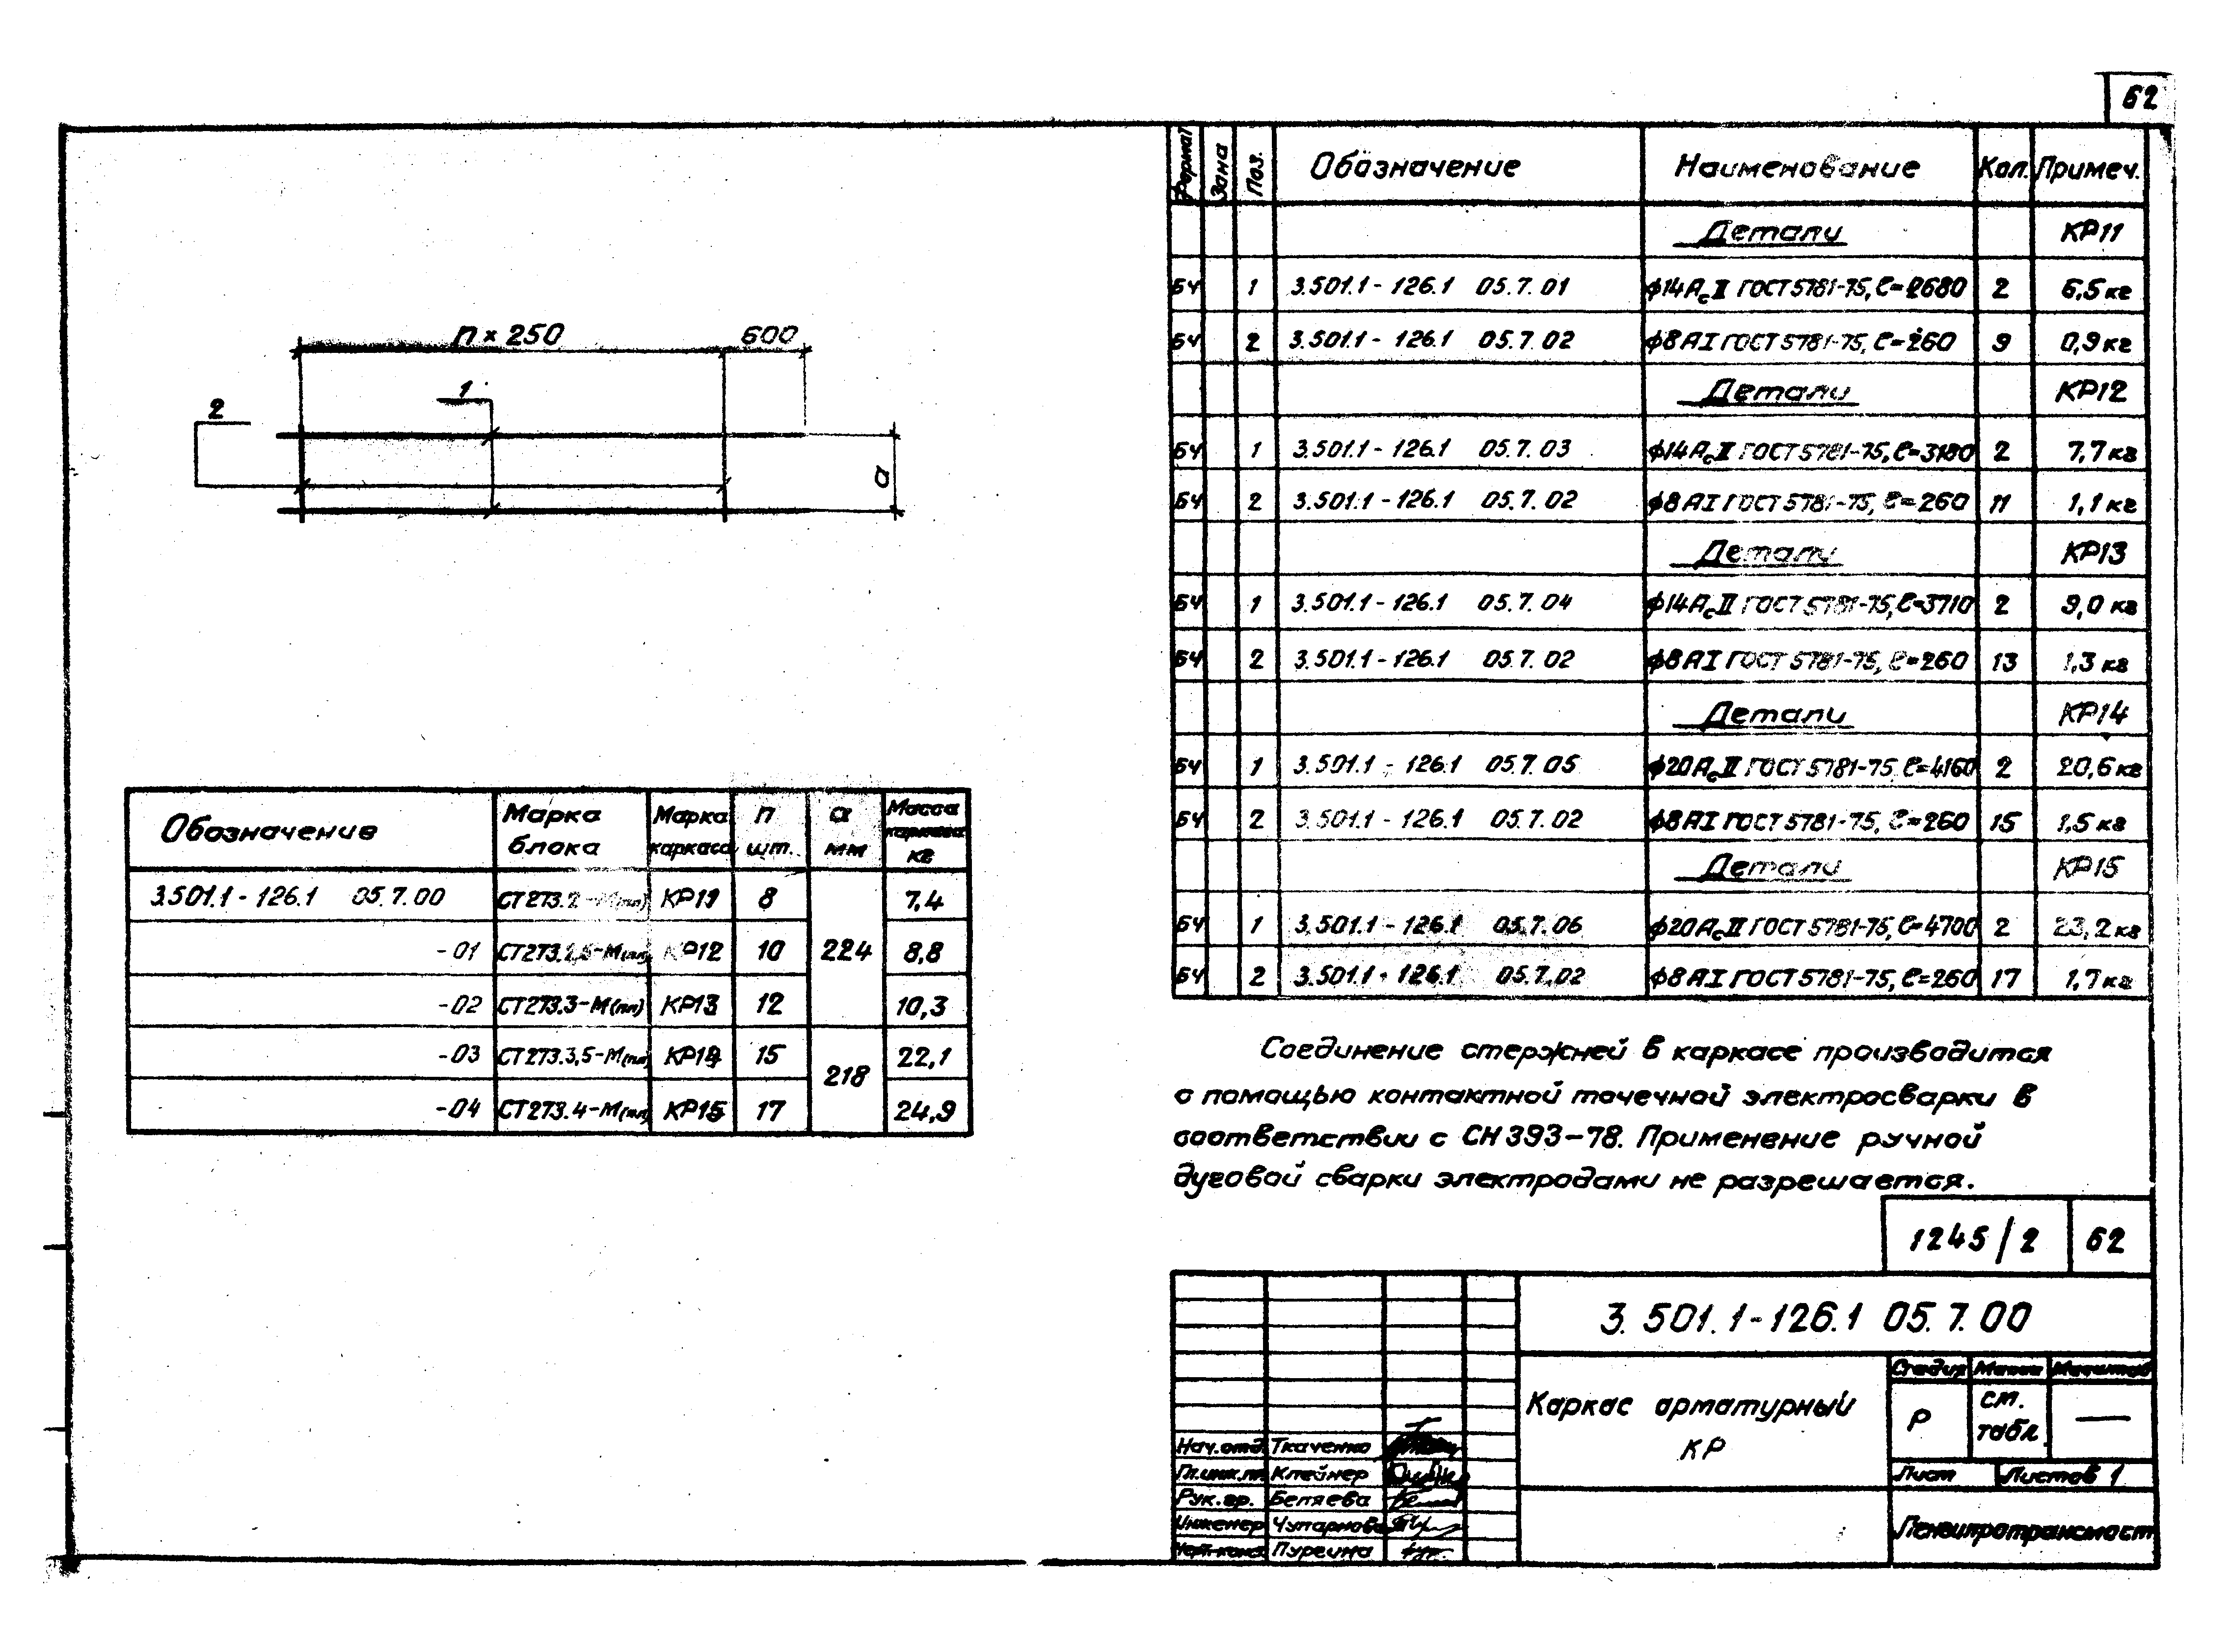 62
n × 250
600
1
2
а
Обозначение | Марка блока | Марка каркаса | n шт. | а мм | Масса каркаса кг
3.501.1-126.1 05.7.00 | СТ273.2-М(пл) | КР11 | 8 | 224 | 7,4
-01 | СТ273.2,5-М(пл) | КР12 | 10 | 8,8
-02 | СТ273.3-М(пл) | КР13 | 12 | 10,3
-03 | СТ273.3,5-М(пл) | КР14 | 15 | 218 | 22,1
-04 | СТ273.4-М(пл) | КР15 | 17 | 24,9
Формат | Зона | Поз. | Обозначение | Наименование | Кол. | Примеч.
Детали | КР11
БЧ | 1 | 3.501.1-126.1 05.7.01 | ф14АсII ГОСТ 5781-75, ℓ=2680 | 2 | 6,5 кг
БЧ | 2 | 3.501.1-126.1 05.7.02 | ф8АI ГОСТ 5781-75, ℓ=260 | 9 | 0,9 кг
Детали | КР12
БЧ | 1 | 3.501.1-126.1 05.7.03 | ф14АсII ГОСТ 5781-75, ℓ=3180 | 2 | 7,7 кг
БЧ | 2 | 3.501.1-126.1 05.7.02 | ф8АI ГОСТ 5781-75, ℓ=260 | 11 | 1,1 кг
Детали | КР13
БЧ | 1 | 3.501.1-126.1 05.7.04 | ф14АсII ГОСТ 5781-75, ℓ=3710 | 2 | 9,0 кг
БЧ | 2 | 3.501.1-126.1 05.7.02 | ф8АI ГОСТ 5781-75, ℓ=260 | 13 | 1,3 кг
Детали | КР14
БЧ | 1 | 3.501.1-126.1 05.7.05 | ф20АсII ГОСТ 5781-75, ℓ=4160 | 2 | 20,6 кг
БЧ | 2 | 3.501.1-126.1 05.7.02 | ф8АI ГОСТ 5781-75, ℓ=260 | 15 | 1,5 кг
Детали | КР15
БЧ | 1 | 3.501.1-126.1 05.7.06 | ф20АсII ГОСТ 5781-75, ℓ=4700 | 2 | 23,2 кг
БЧ | 2 | 3.501.1-126.1 05.7.02 | ф8АI ГОСТ 5781-75, ℓ=260 | 17 | 1,7 кг
Соединение стержней в каркасе производится
с помощью контактной точечной электросварки в
соответствии с СН 393-78. Применение ручной
дуговой сварки электродами не разрешается.
1245/2 | 62
3.501.1-126.1 05.7.00
Каркас арматурный
КР
Стадия | Масса | Масштаб
Р | см. табл. | —
Лист | Листов 1
Ленгипротрансмост
Нач.отд. Ткаченко
Гл.инж.пр. Клейнер
Рук.гр. Беляева
Инженер Чупарнова
Пурсина